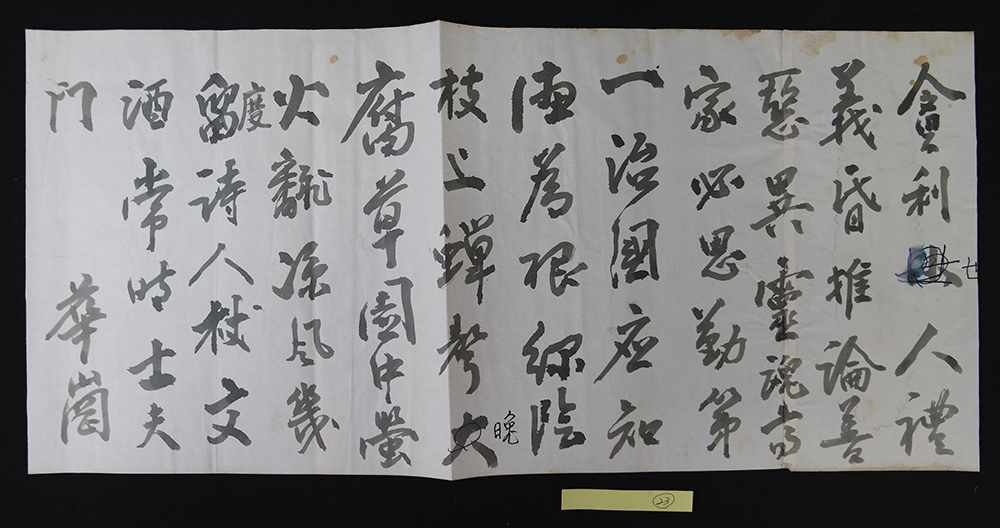 貪利世人禮
義昏推論善
惡異靈魂當
家必思勤第
一治國应知
德為根綠陰
枝上蟬聲晚
腐草園中螢
火飜凉风幾
度留詩人杖文
酒常時士夫
門 華崗
23